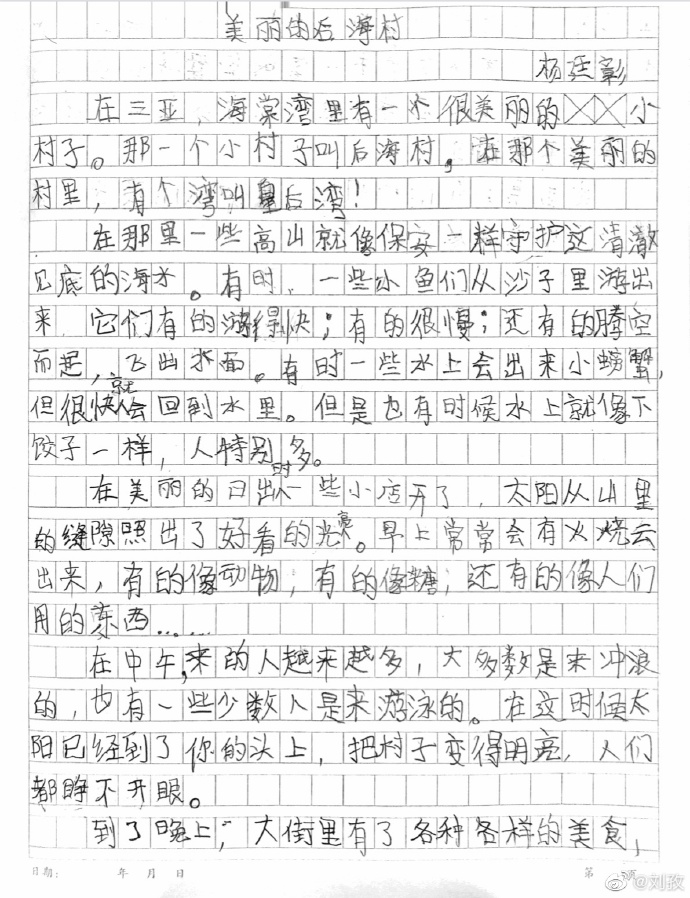 美丽的后海村
杨廷彰
在三亚，海棠湾里有一个很美丽的小
村子。那一个小村子叫后海村，在那个美丽的
村里，有个湾叫皇后湾！
在那里一些高山就像保安一样守护这清澈
见底的海水。有时、一些小鱼们从沙子里游出
来，它们有的游得快；有的很慢；还有的腾空
而起，飞出水面。有时一些水上会出来小螃蟹，
但很快就会回到水里。但是也有时候水上就像下
饺子一样，人特别多。
在美丽的日出时一些小店开了，太阳从山里
的缝隙照出了好看的光亮。早上常常会有火烧云
出来，有的像动物；有的像糖；还有的像人们
用的东西……
在中午，来的人越来越多，大多数是来冲浪
的，也有一些少数人是来游泳的。在这时候太
阳已经到了你的头上，把村子变得明亮，人们
都睁不开眼。
到了晚上，大街里有了各种各样的美食，
日期： 年 月 日 第 页
@刘孜